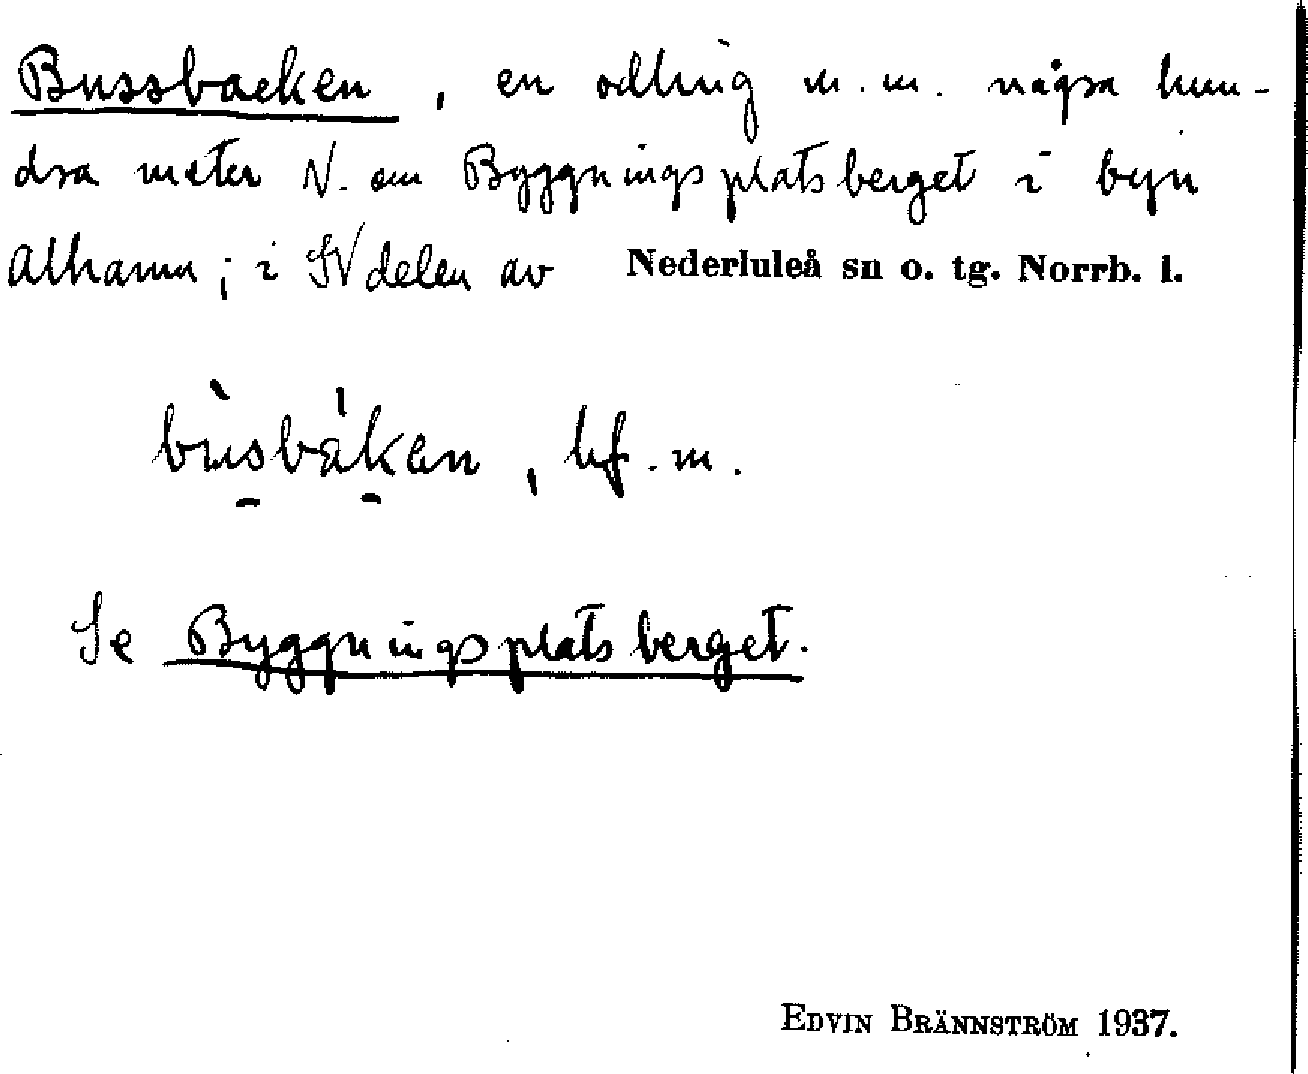 Bussbacken, en odling m.m. några hun-
dra meter N. om Byggningsplatsberget i byn
Alhamn; i SV delen av Nederluleå sn o. tg. Norrb. l.
bùsbákan, bf. m.
Se Byggningsplatsberget.
EDVIN BRÄNNSTRÖM 1937.